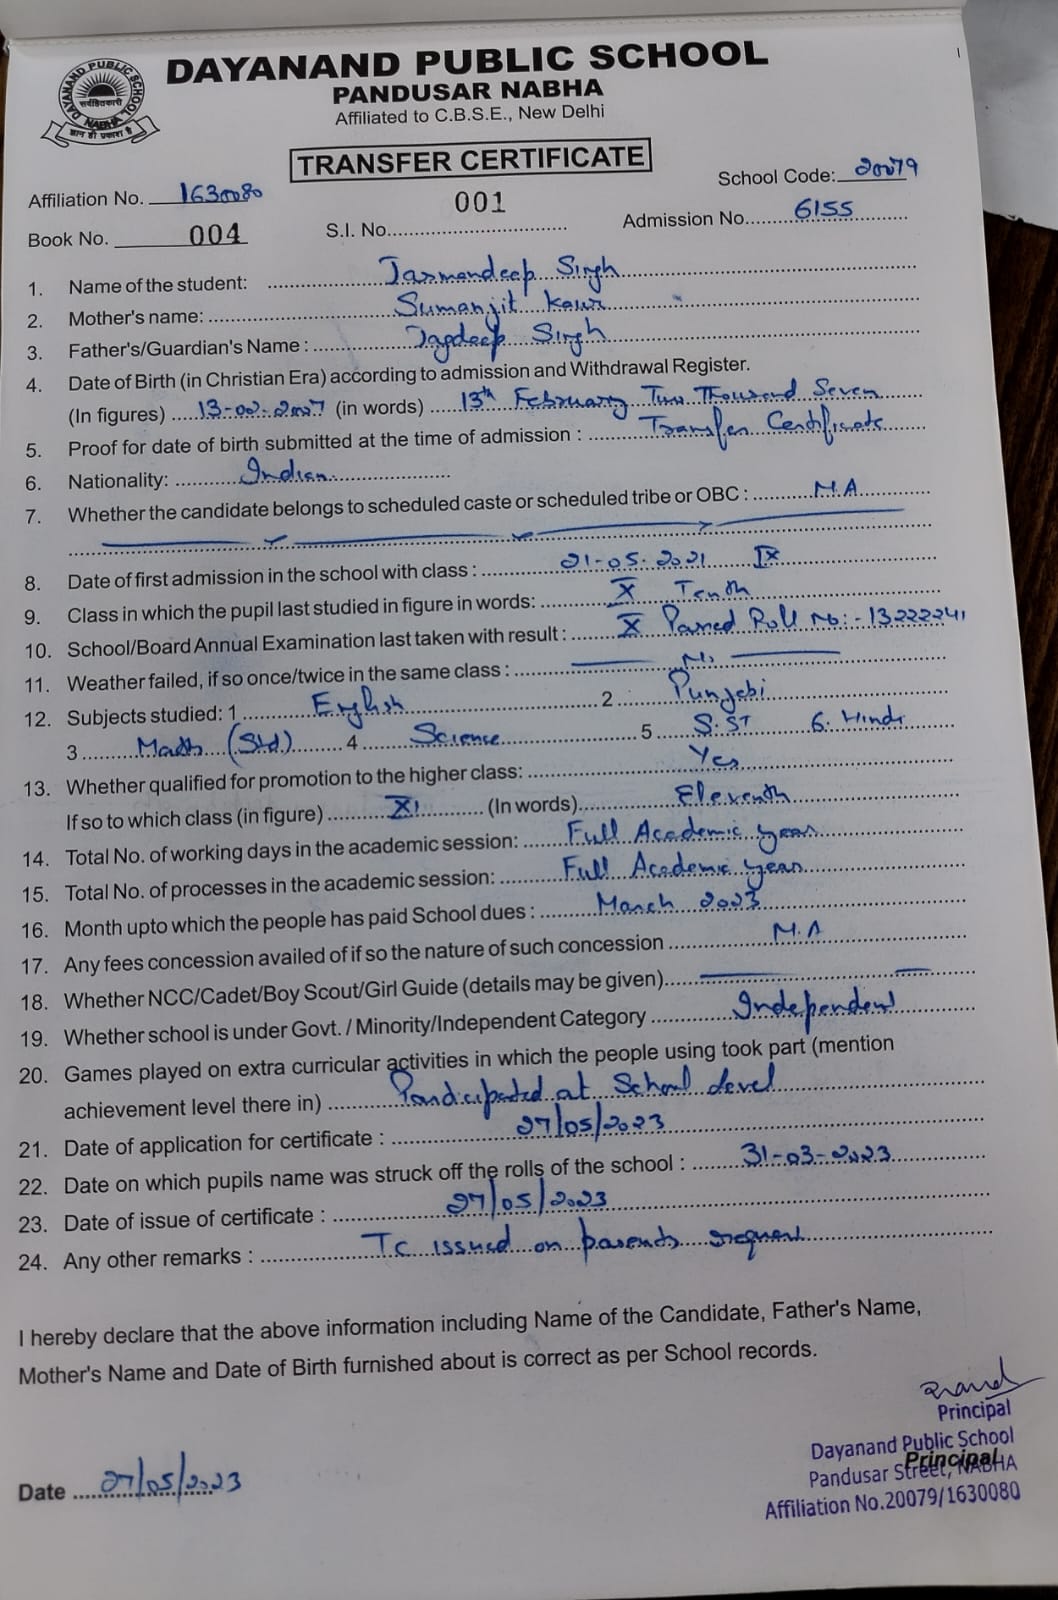 DAYANAND PUBLIC SCHOOL
PANDUSAR NABHA
Affiliated to C.B.S.E., New Delhi
DAYANAND PUBLIC SCHOOL
सर्वहितकारी
NABHA
ज्ञान ही प्रकाश है
TRANSFER CERTIFICATE
Affiliation No. 1630080 School Code: 20079
Book No. 004 S.I. No. 001 Admission No. 6155
1. Name of the student: Jasmandeep Singh
2. Mother's name: Sumanjit Kaur
3. Father's/Guardian's Name : Jagdeep Singh
4. Date of Birth (in Christian Era) according to admission and Withdrawal Register.
(In figures) 13-02-2007 (in words) 13th February Two Thousand Seven
5. Proof for date of birth submitted at the time of admission : Transfer Certificate
6. Nationality: Indian
7. Whether the candidate belongs to scheduled caste or scheduled tribe or OBC : N.A
8. Date of first admission in the school with class : 21-05-2021 IX
9. Class in which the pupil last studied in figure in words: X Tenth
10. School/Board Annual Examination last taken with result : X Passed Roll No:- 13222241
11. Weather failed, if so once/twice in the same class : No
12. Subjects studied: 1 English 2 Punjabi
3 Math (Std) 4 Science 5 S.ST 6. Hindi
13. Whether qualified for promotion to the higher class: Yes
If so to which class (in figure) XI (In words) Eleventh
14. Total No. of working days in the academic session: Full Academic year
15. Total No. of processes in the academic session: Full Academic year
16. Month upto which the people has paid School dues : March 2023
17. Any fees concession availed of if so the nature of such concession N.A
18. Whether NCC/Cadet/Boy Scout/Girl Guide (details may be given)
19. Whether school is under Govt. / Minority/Independent Category Independent
20. Games played on extra curricular activities in which the people using took part (mention
achievement level there in) Participated at School level
21. Date of application for certificate : 27/05/2023
22. Date on which pupils name was struck off the rolls of the school : 31-03-2023
23. Date of issue of certificate : 27/05/2023
24. Any other remarks : Tc issued on parents request
I hereby declare that the above information including Name of the Candidate, Father's Name,
Mother's Name and Date of Birth furnished about is correct as per School records.
Principal
Dayanand Public School
Principal
Pandusar Street, NABHA
Affiliation No.20079/1630080
Date 27/05/2023